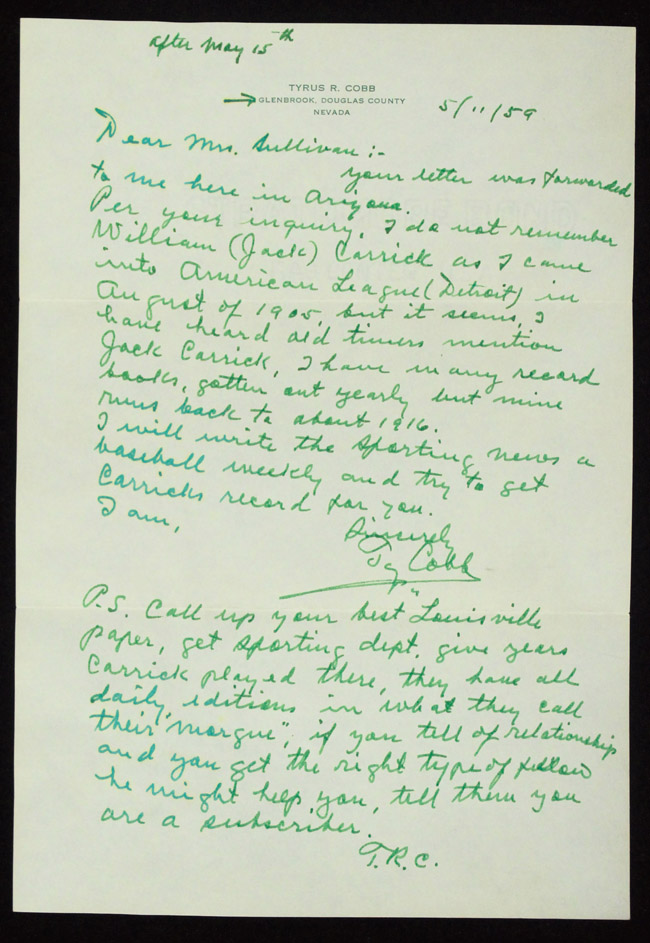 after may 15th
TYRUS R. COBB
GLENBROOK, DOUGLAS COUNTY
NEVADA
5/11/59
Dear Mrs. Sullivan :-
your letter was forwarded
to me here in Arizona.
Per your inquiry, I do not remember
William (Jack) Carrick as I came
into American League (Detroit) in
August of 1905, but it seems, I
have heard old timers mention
Jack Carrick, I have many record
books, gotten out yearly but mine
runs back to about 1916.
I will write the Sporting news a
baseball weekly and try to get
Carricks record for you.
I am,
Sincerely
Ty Cobb
P.S. Call up your best "Louisville
paper, get sporting dept. give years
Carrick played there, they have all
daily editions in what they call
their "morgue", if you tell of relationship
and you get the right type of fellow
he might help you, tell them you
are a subscriber.
T.R.C.